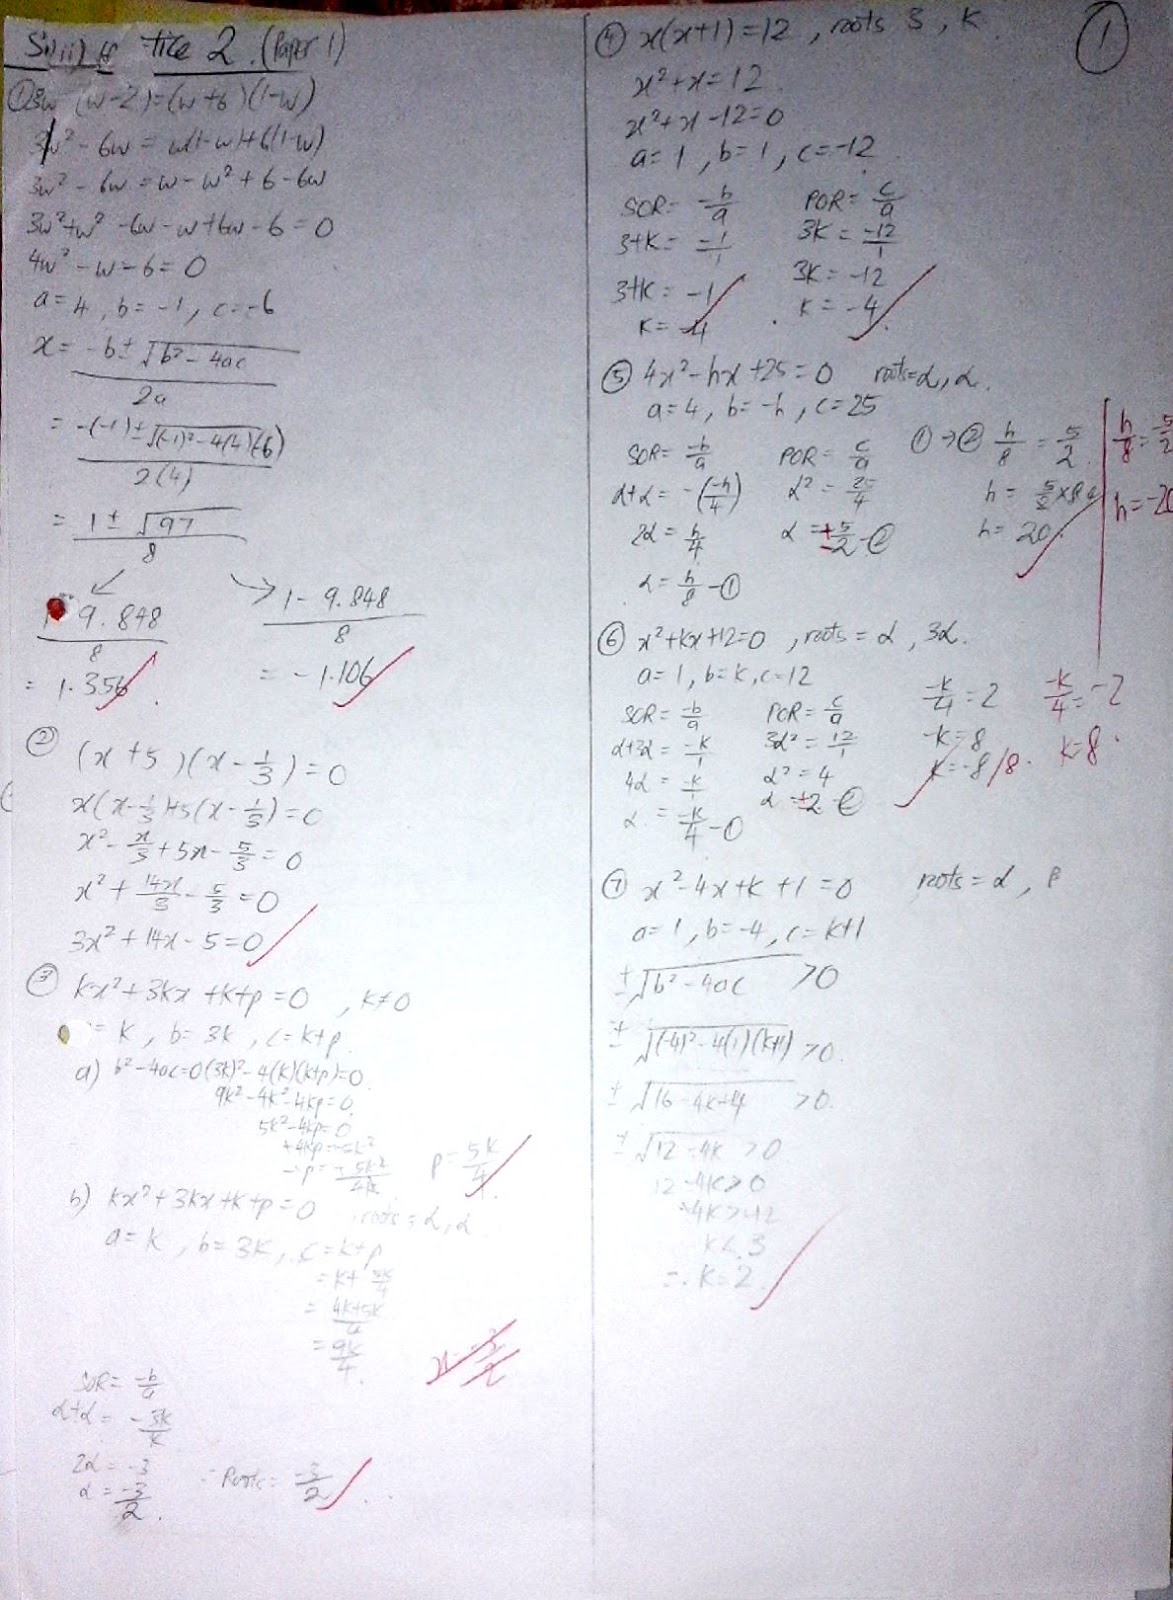 tice 2. (Paper 1)
① 3w (w-2)=(w+6)(1-w)
3w² - 6w = w(1-w)+6(1-w)
3w² - 6w = w - w² + 6 - 6w
3w²+w² -6w - w +6w - 6 = 0
4w² - w - 6 = 0
a = 4, b = -1, c = -6
x = -b ± √b² - 4ac / 2a
= -(-1) ± √(-1)² - 4(4)(-6) / 2(4)
= 1 ± √97 / 8
9.848 / 8
1 - 9.848 / 8
= 1.356
= -1.106
② (x + 5)(x - 1/3) = 0
x(x - 1/3)+5(x - 1/3) = 0
x² - x/3 + 5x - 5/3 = 0
x² + 14x/3 - 5/3 = 0
3x² + 14x - 5 = 0
③ kx² + 3kx + k+p = 0, k≠0
= k, b = 3k, c = k+p
a) b² - 4ac = 0 (3k)² - 4(k)(k+p) = 0
9k² - 4k² - 4kp = 0
5k² - 4kp = 0
p = 5k/4
b) kx² + 3kx + k + p = 0, roots = α, α
a = k, b = 3k, c = k+p
= k + 5k/4
= 4k+5k / 4
= 9k/4
SOR = -b/a
α+α = -3k/k
2α = -3
α = -3/2
∴ Roots = -3/2
④ x(x+1) = 12, roots 3, k
①
x² + x = 12
x² + x - 12 = 0
a = 1, b = 1, c = -12
SOR = -b/a
POR = c/a
3+k = -1/1
3k = -12/1
3+k = -1
3k = -12
k = -4
k = -4
⑤ 4x² - hx + 25 = 0 roots = α, α.
a = 4, b = -h, c = 25
SOR = -b/a
POR = c/a
α+α = -(-h/4)
α² = 25/4
2α = h/4
α = ±5/2 - ②
α = h/8 - ①
① → ② h/8 = 5/2
h = 5/2 × 8
h = 20
h/8 = -5/2
h = -20
⑥ x² + kx + 12 = 0, roots = α, 3α.
a = 1, b = k, c = 12
SOR = -b/a
POR = c/a
α+3α = -k/1
3α² = 12/1
4α = -k/1
α² = 4
α = -k/4 - ①
α = ±2 - ②
-k/4 = 2
-k = 8
k = -8/8.
-k/4 = -2
k = 8
⑦ x² - 4x + k + 1 = 0 roots = α, β
a = 1, b = -4, c = k+1
± √b² - 4ac > 0
± √(-4)² - 4(1)(k+1) > 0
± √16 - 4k + 4 > 0
± √12 - 4k > 0
12 - 4k > 0
-4k > -12
k < 3
∴ k = 2